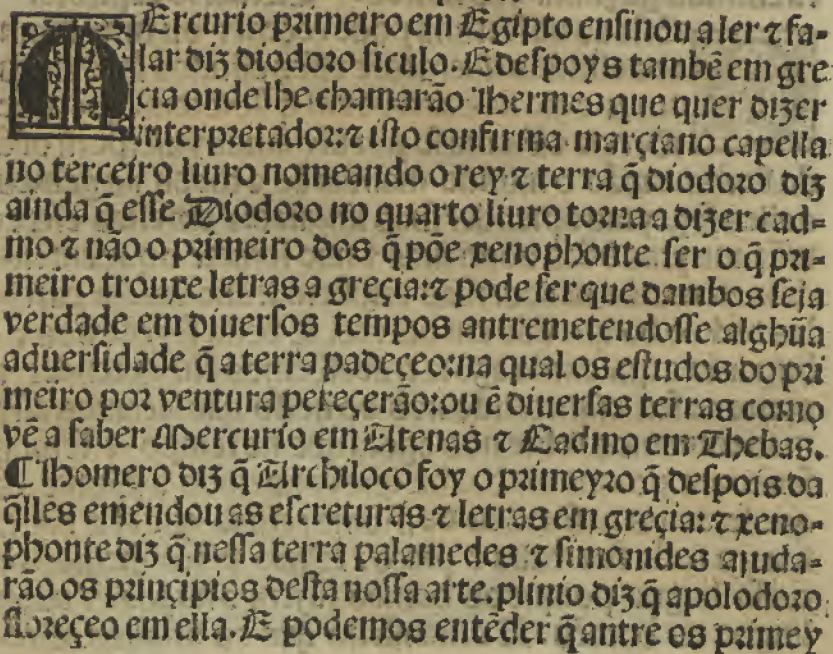 MErcurio primeiro em Egipto enſinou a ler ⁊ fa-
lar diz diodoro ſiculo. E deſpoys tambẽ em gre
cia onde lhe chamarão Hermes que quer dizer
interpretador: ⁊ iſto confirma marçiano capella
no terceiro liuro nomeando o rey ⁊ terra q̃ diodoro diz
ainda q̃ eſſe Diodoro no quarto liuro torna a dizer cad-
mo ⁊ não o primeiro dos q̃ põe xenophonte ſer o q̃ pri-
meiro trouxe letras a greçia: ⁊ pode ſer que dambos ſeja
verdade em diuerſos tempos antremetendoſſe alghũa
aduerſidade q̃ a terra padeçeo: na qual os eſtudos do pri
meiro por ventura pereçerão: ou ẽ diuerſas terras como
vẽ a ſaber Mercurio em Atenas ⁊ Cadmo em Thebas.
¶ Homero diz q̃ Archiloco foy o primeyro q̃ deſpois da
q̃lles emendou as eſcreturas ⁊ letras em greçia: ⁊ xeno-
phonte diz q̃ neſſa terra palamedes ⁊ ſimonides ajuda-
rão os prinçipios deſta noſſa arte. plinio diz q̃ apolodoro
floreçeo em ella. E podemos entẽder q̃ antre os primey